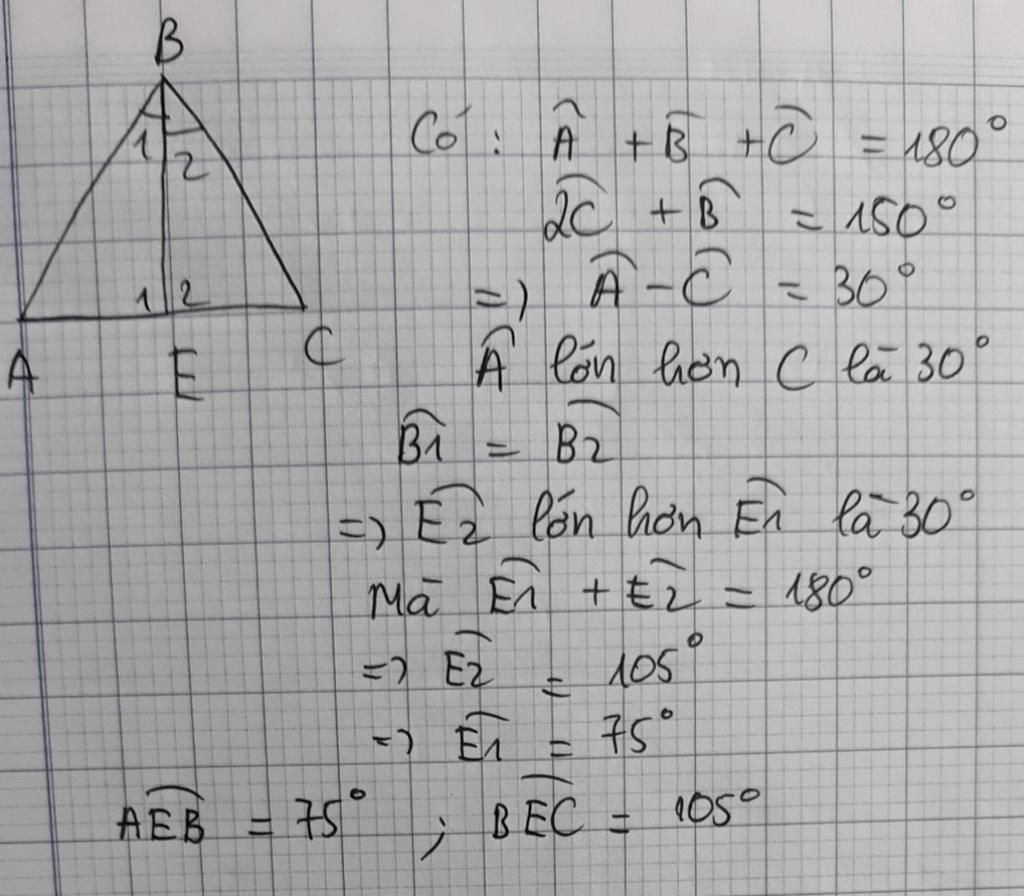 B
1 2
1 2
A E C
Có: A + B + C = 180°
2C + B = 150°
=> A - C = 30°
A lớn hơn C là 30°
B1 = B2
=> E2 lớn hơn E1 là 30°
Mà E1 + E2 = 180°
=> E2 = 105°
=> E1 = 75°
AEB = 75° ; BEC = 105°